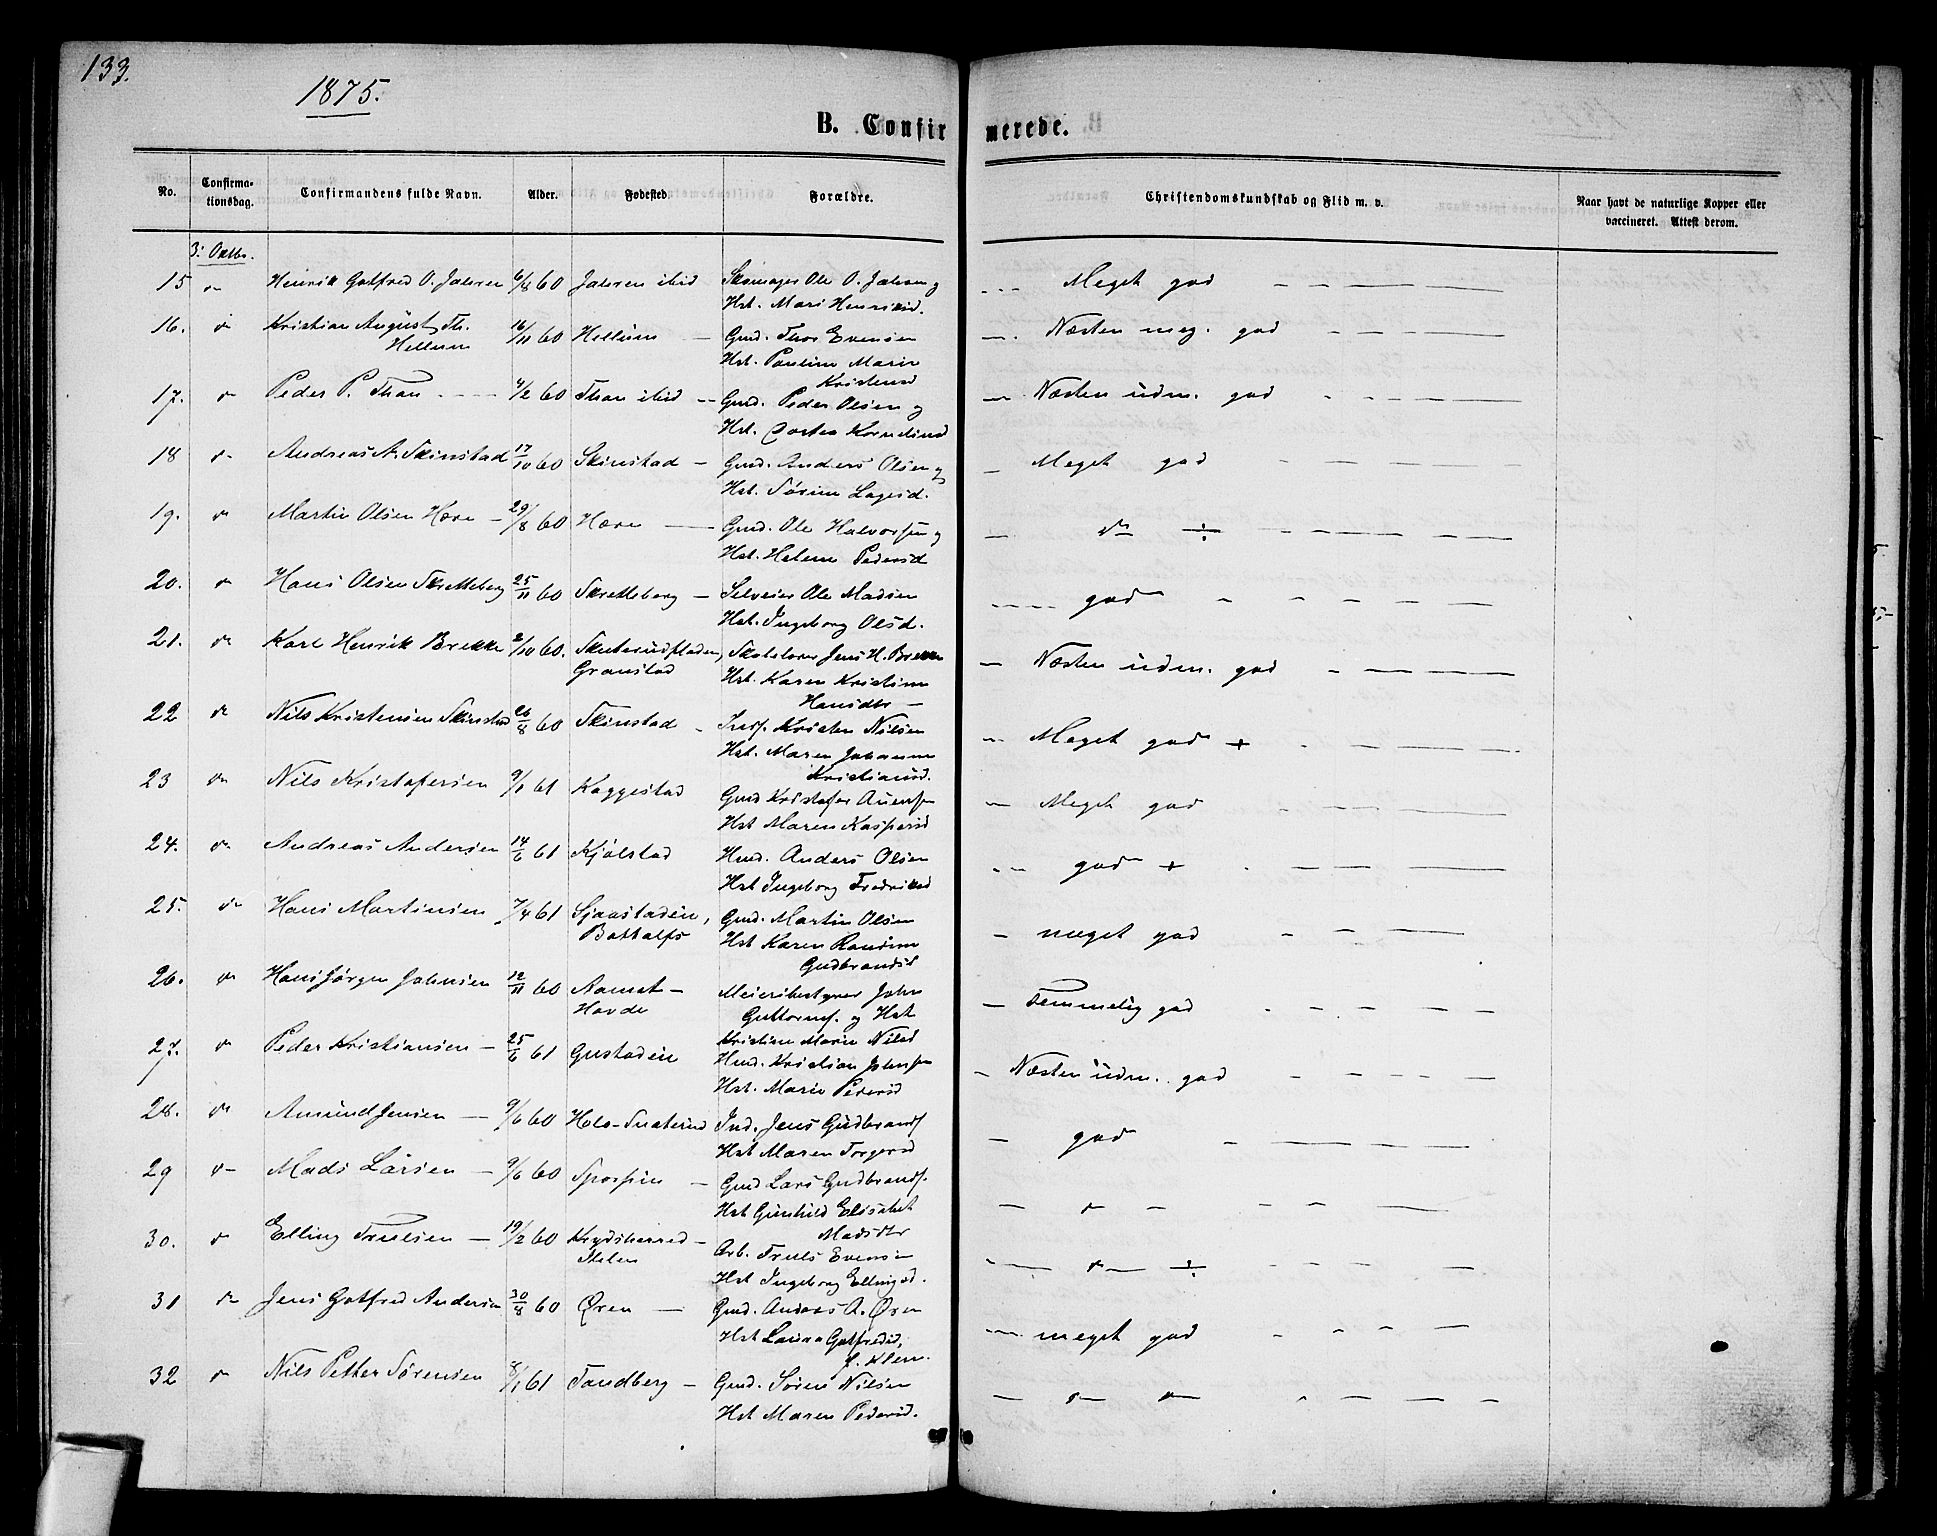 133.
1875.
B. Confirmerede.
No. Confirma-tionsdag. Confirmandens fulde Navn. Alder. Fødested. Forældre. Christendomskundskab og Flid m. v. Naar havt de naturlige Kopper eller vaccineret. Attest derom.
3: Octbr.
15 do Henrik Gotfred O. Jahren 6/8 60 Jahren ibid Skomager Ole O. Jahren og - - - Meget god
Hst. Mari Henriksd.
16. do Kristian August Th. 16/11 60 Hellum — Gmd. Thor Evensen — Næsten meg. god
Hellum Hst. Pauline Marie
Kristensd
17. do Peder P. Than 4/2 60 Than ibid — Gmd. Peder Olsen og — Næsten udm. god
Hst. Dortea Kornelius d
18 do Andreas A. Skinstad 17/10 60 Skinstad — Gmd. Anders Olsen og — Meget god
Hst. Sørine Lagesd.
19. do Martin Olsen Hære — 29/8 60 Hære — Gmd. Ole Halvorsen og — do ÷
Hst. Helene Pedersd
20. do Hans Olsen Skretteberg 25/11 60 Skretteberg — Selveier Ole Madsen - - - god
Hst. Ingeborg Olsd.
21. do Karl Henrik Brekke 2/10 60. Skuterudfladen, Skolelærer Jens H. Brekke — Næsten udm. god
Granstad Hst. Karen Kristine
Hansdtr —
22 do Nils Kristensen Skinstad 26/8 60 Skinstad - Insp. Kristen Nilsen — Meget god +
Hst. Maren Johanne
Kristiansd.
23 do Nils Kristofersen 9/1 61 Kaggestad Gmd Kristofer Auensen — Meget god
Hst Maren Kaspersd
24. do Andreas Andersen 14/6 61 Kjølstad Hmd. Anders Olsen - - god +
Hst Ingeborg Fredriksd
25. do Hans Martinsen 7/4 61 Sjaastadeie, Gmd. Martin Olsen — meget god
Bottolfs Hst Karen Randine
Gudbrandsd
26. do Hans Jørgen Johnsen 12/11 60 Aamot — Meieribestyrer John — Temmelig god
Hovde Guttormsen og Hst
Kristine Marie Nilsd
27. do Peder Kristiansen — 25/6 61 Gustadeie Hmd. Kristian Johnsen — Næsten udm. god
Hst. Marie Pedersd
28. do Amund Jensen — 9/6 60 Hole-Tuaterud Ind. Jens Gudbrandsen — god
Hst Maren Torgersd
29 do Mads Larsen — 9/6 60 Sporpin — Gmd Lars Gudbrands. — do —
Hst Gunhild Elisabet
Madsdtr
30. do Elling Trulsen — 19/2 60 Krydsherred — Arb. Truls Evensen - do — ÷
Hst Ingeborg Ellingsd.
31 do Jens Gotfred Andersen 30/8 60 Øren — Gmd. Anders A. Øren - - meget god
Hst Laura Gotfredsd,
f. Klem.
32 do Nils Petter Sørensen 8/1 61 Tandberg — Gmd. Søren Nilsen — do do
Hst Maren Pedersd.